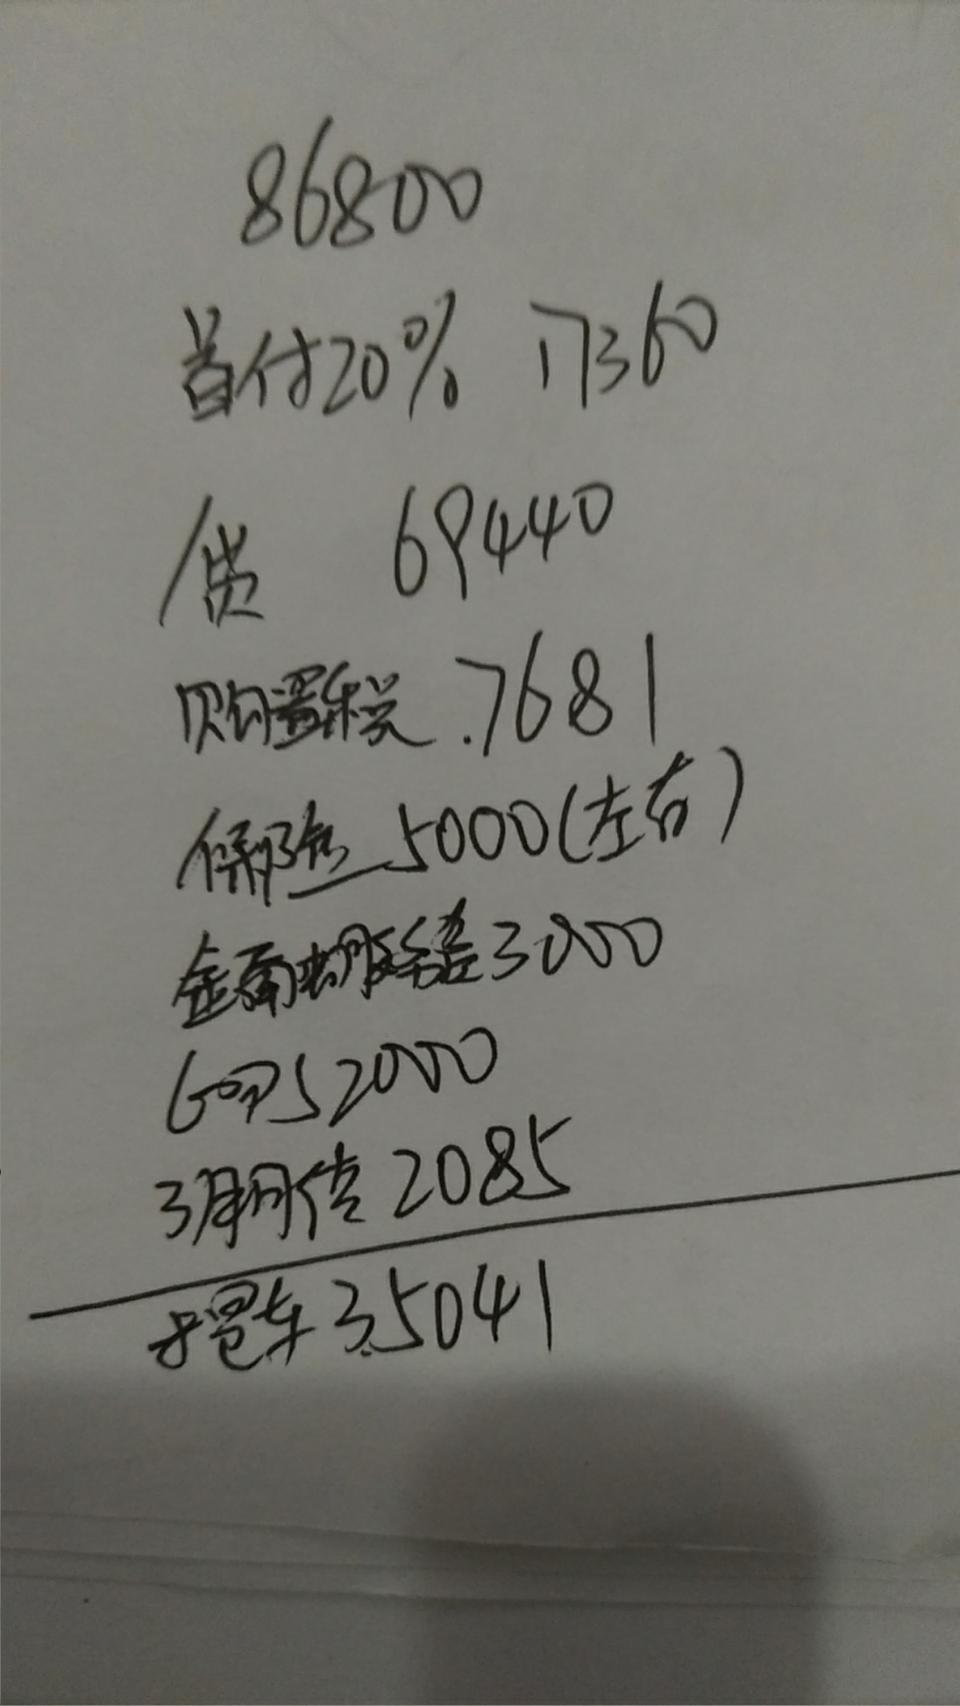 86800
首付20% 17360
贷 69440
购置税 7681
保险 5000(左右)
金融 3000
GPS 2000
3月 2085
提车 35041